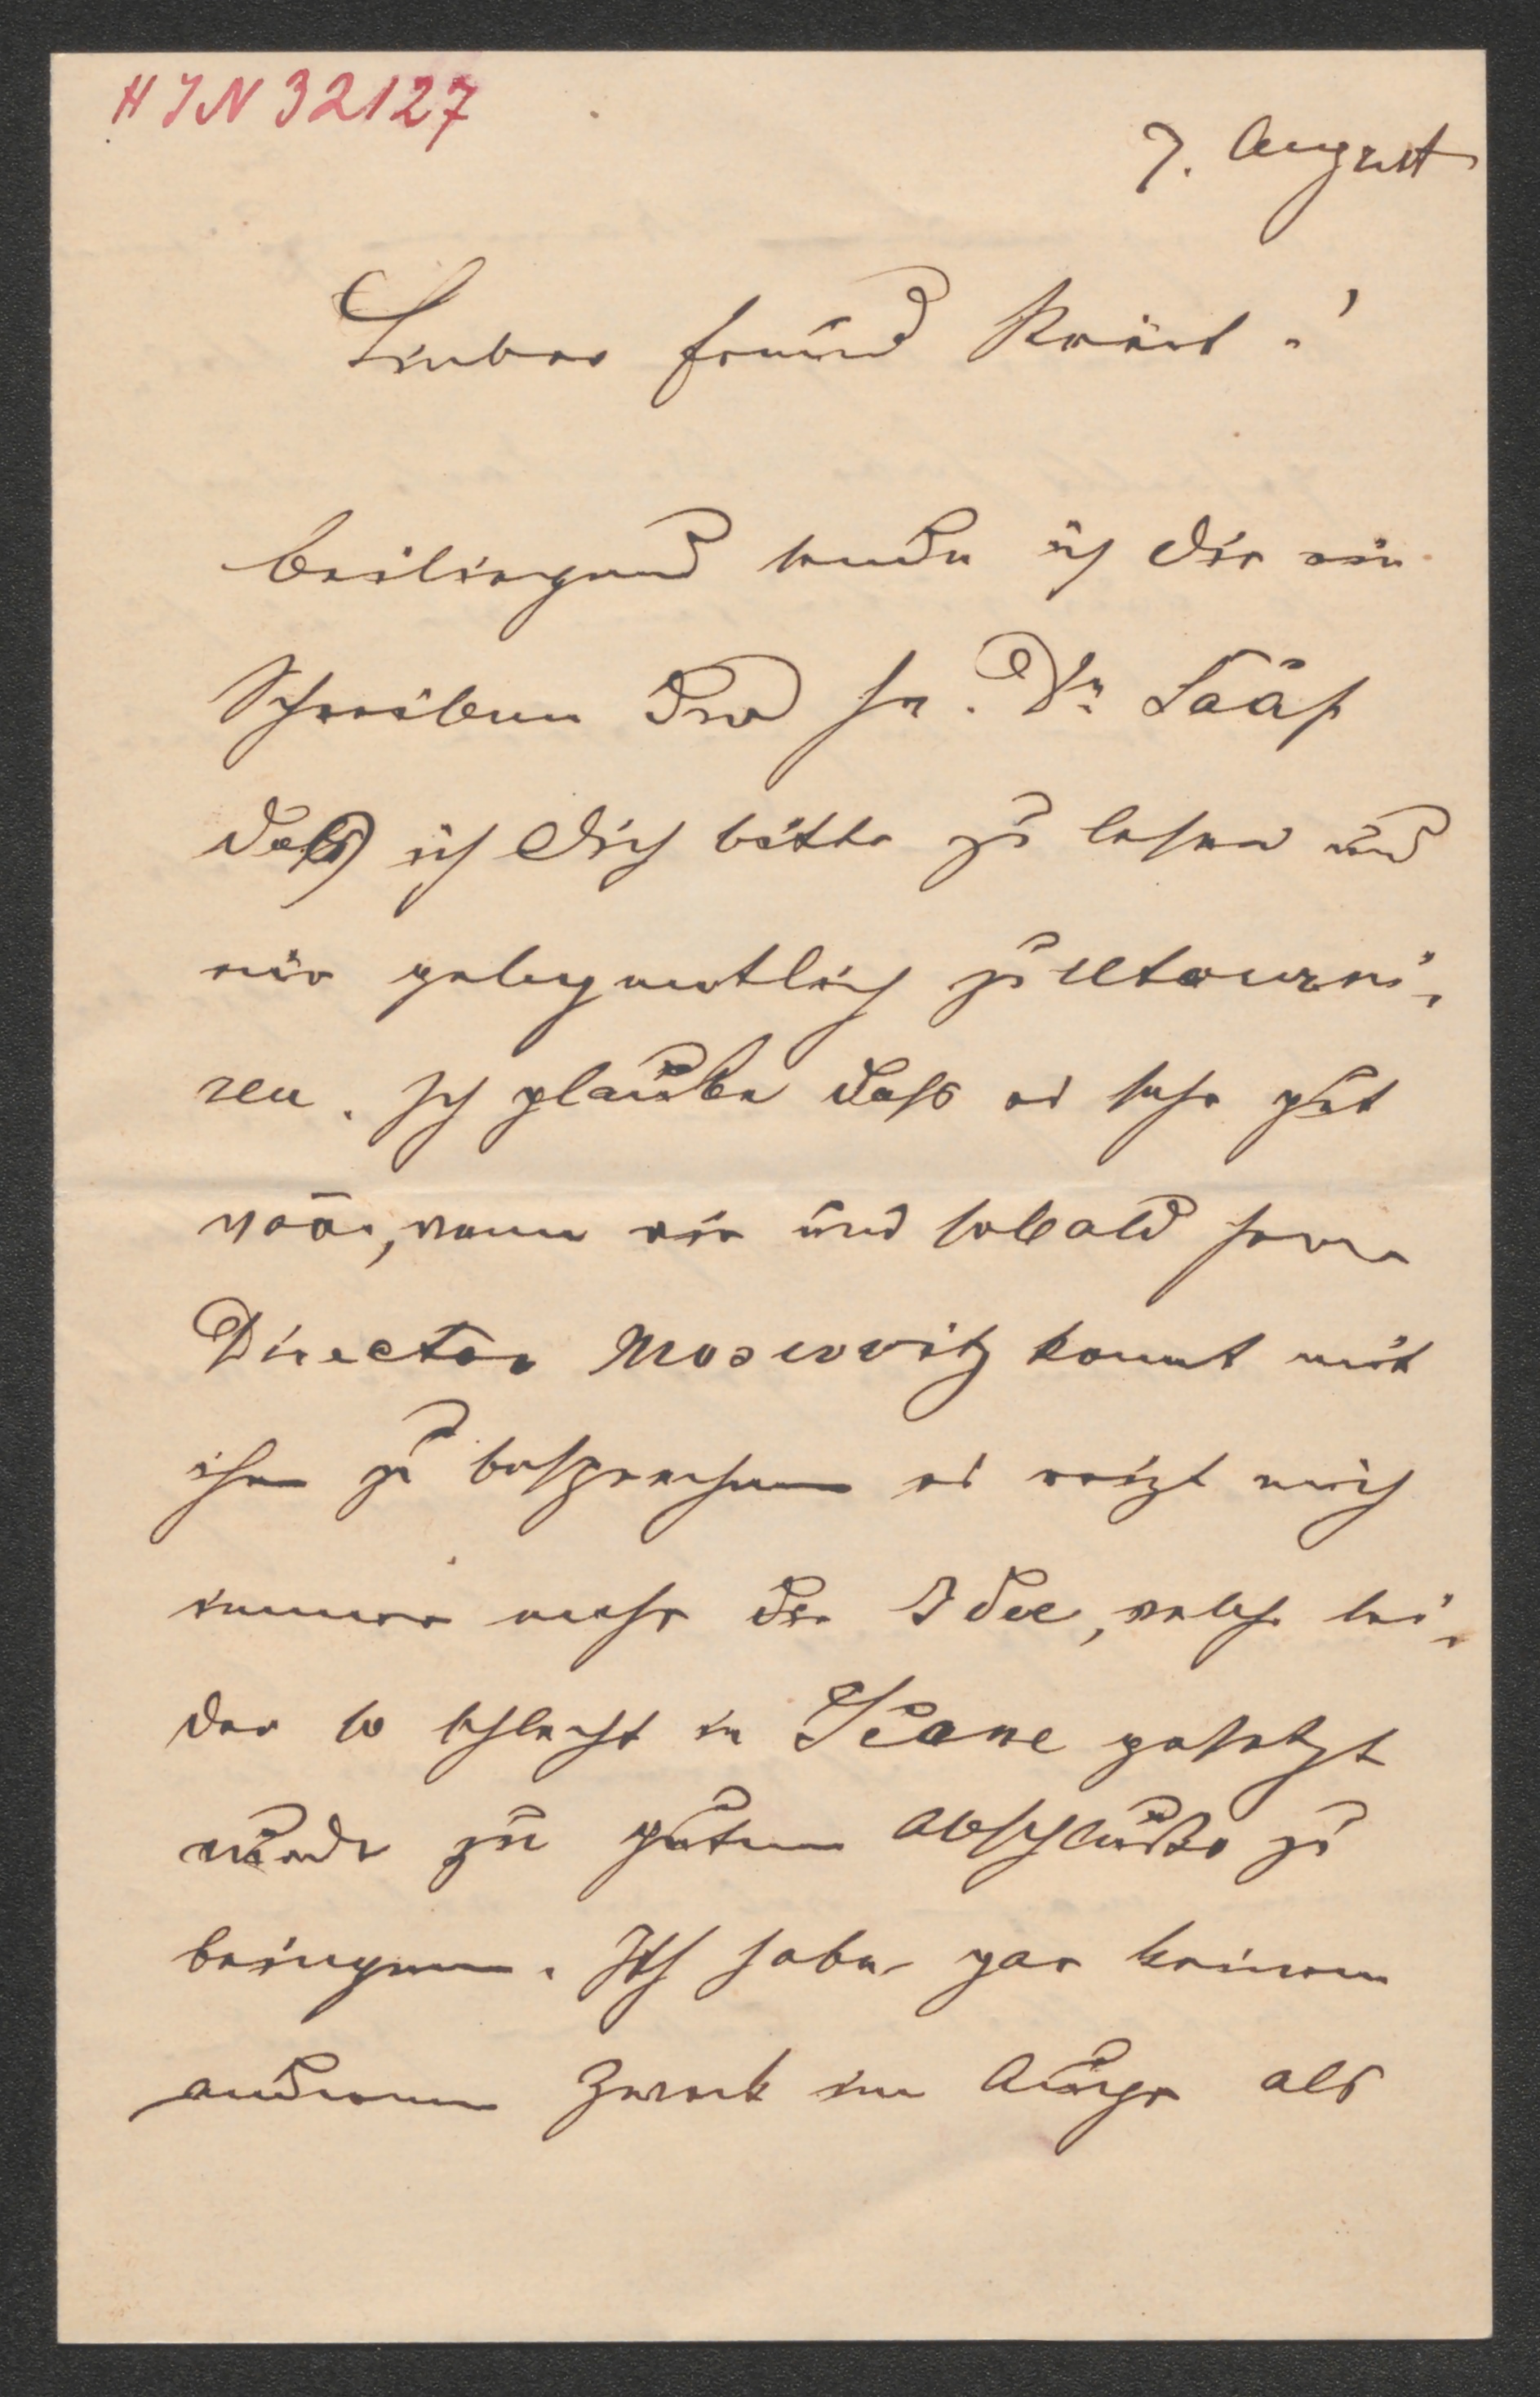 H I N 32127
7. August
Lieber Freund
beiliegend sende ich Dir ein
Schreiben des Hr. Dr.
das ich Dich bitte zu lesen und
mir gelegentlich zu retourni-
ren. Ich glaube dass es sehr gut
wär, wenn wir uns sobald Herr
Director Moscovitz kommt mit
ihm zu besprechen es reizt mich
immer mehr die Idee, welche lei-
der so schlecht in Scene gesetzt
wurde zu gutem Abschluße zu
bringen. Ich habe gar keinen
anderen Zweck im Auge als